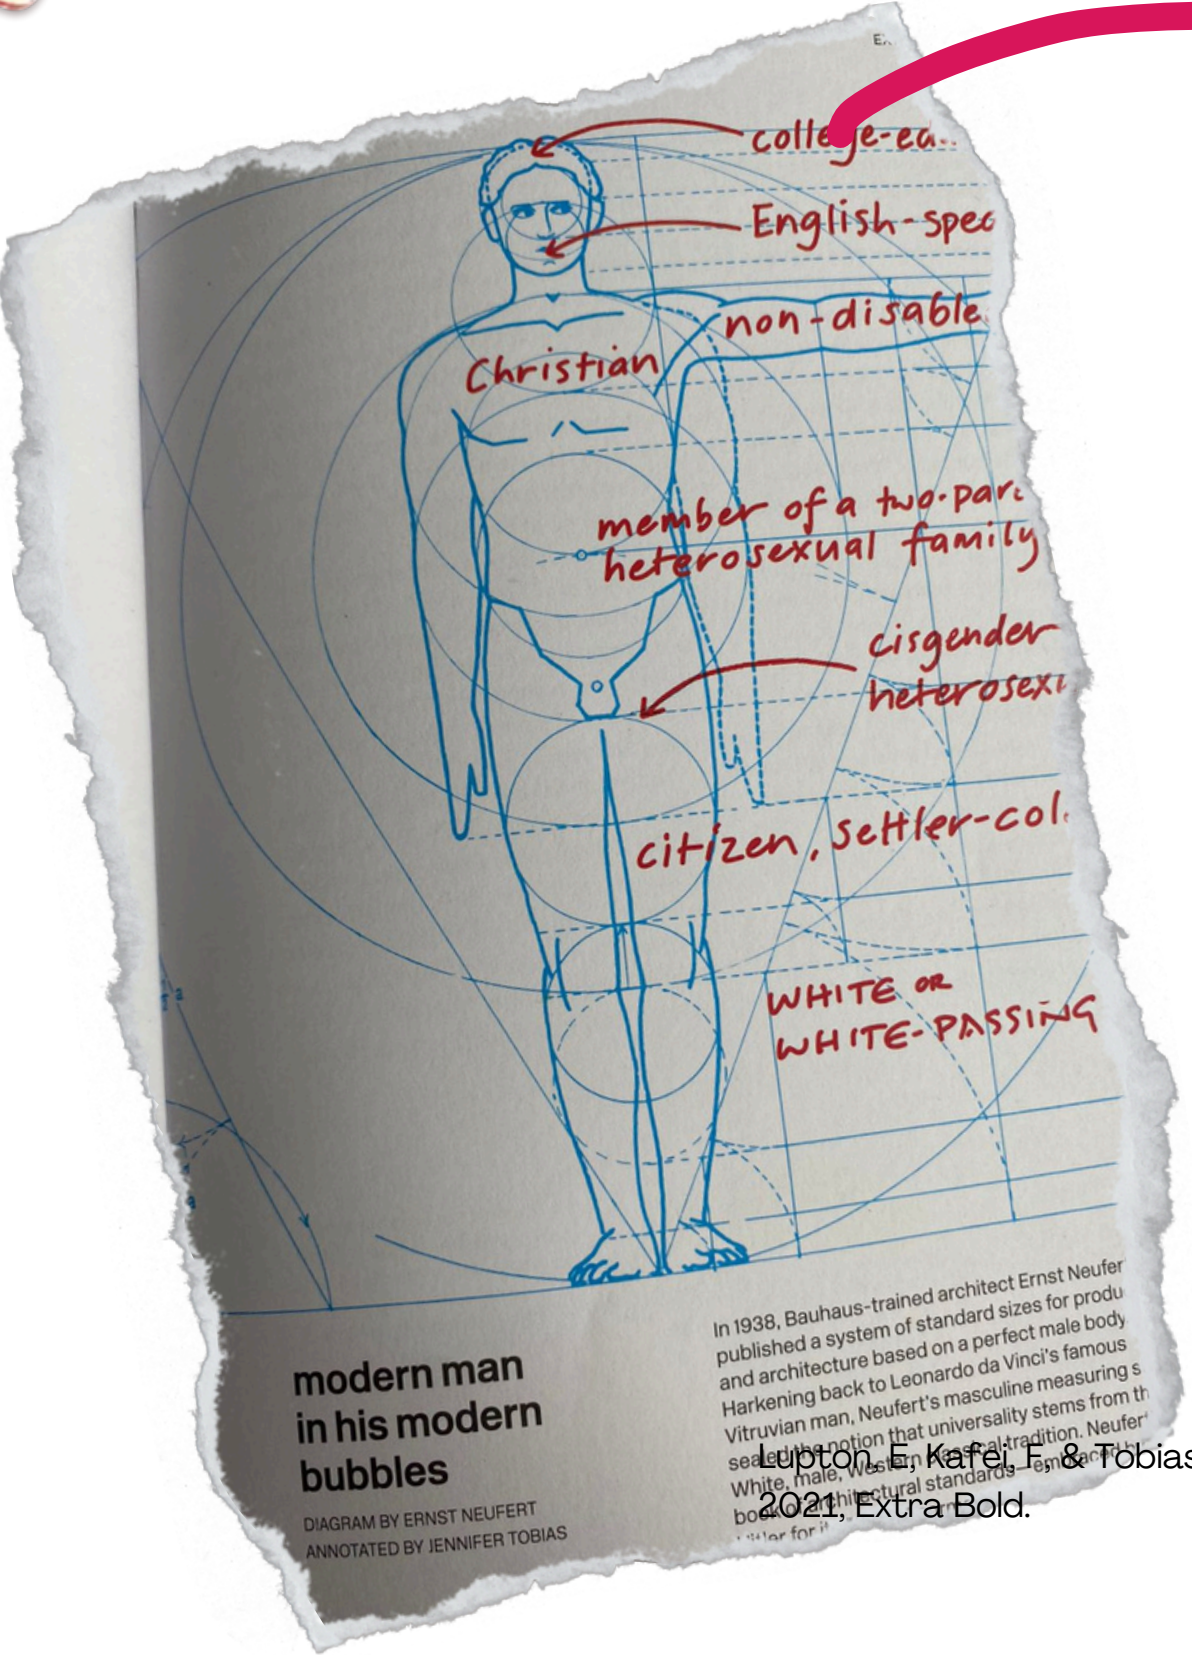 college-ed
English-spec
non-disable
Christian
member of a two-par
heterosexual family
cisgender
heterosex
citizen, settler-col
WHITE OR
WHITE-PASSING
modern man
in his modern
bubbles
DIAGRAM BY ERNST NEUFERT
ANNOTATED BY JENNIFER TOBIAS
In 1938, Bauhaus-trained architect Ernst Neufer
published a system of standard sizes for produ
and architecture based on a perfect male body
Harkening back to Leonardo da Vinci's famous
Vitruvian man, Neufert's masculine measuring s
sealed the notion that universality stems from th
White, male, Western classical tradition. Neufer
book of architectural standards—embraced by
Lupton, E, Kafei, F, & Tobias
2021, Extra Bold.